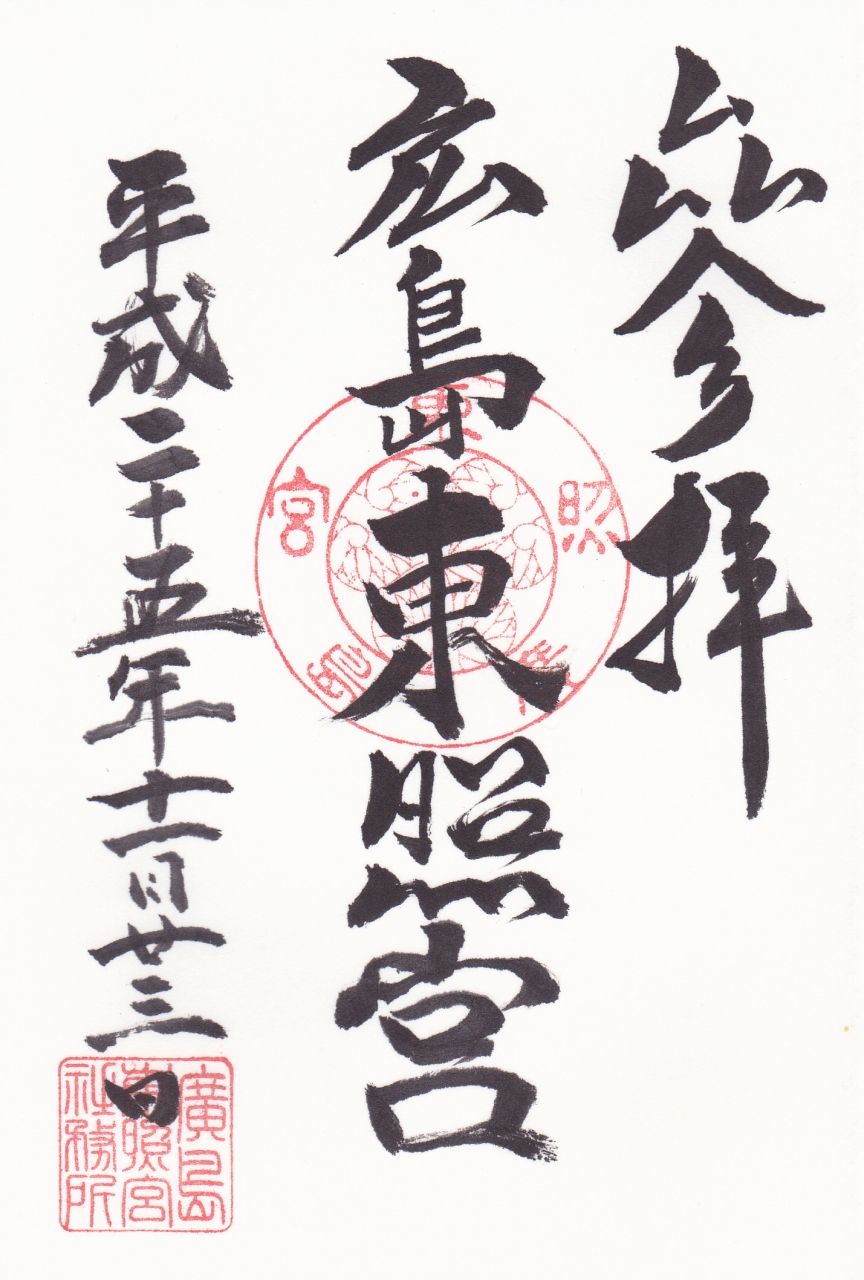 參拝
広島東照宮
平成二十五年十一月廿三日
廣島
東照宮
社務所